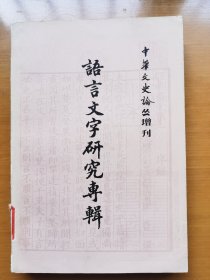 中华文史論丛增刊
語言文字研究專輯